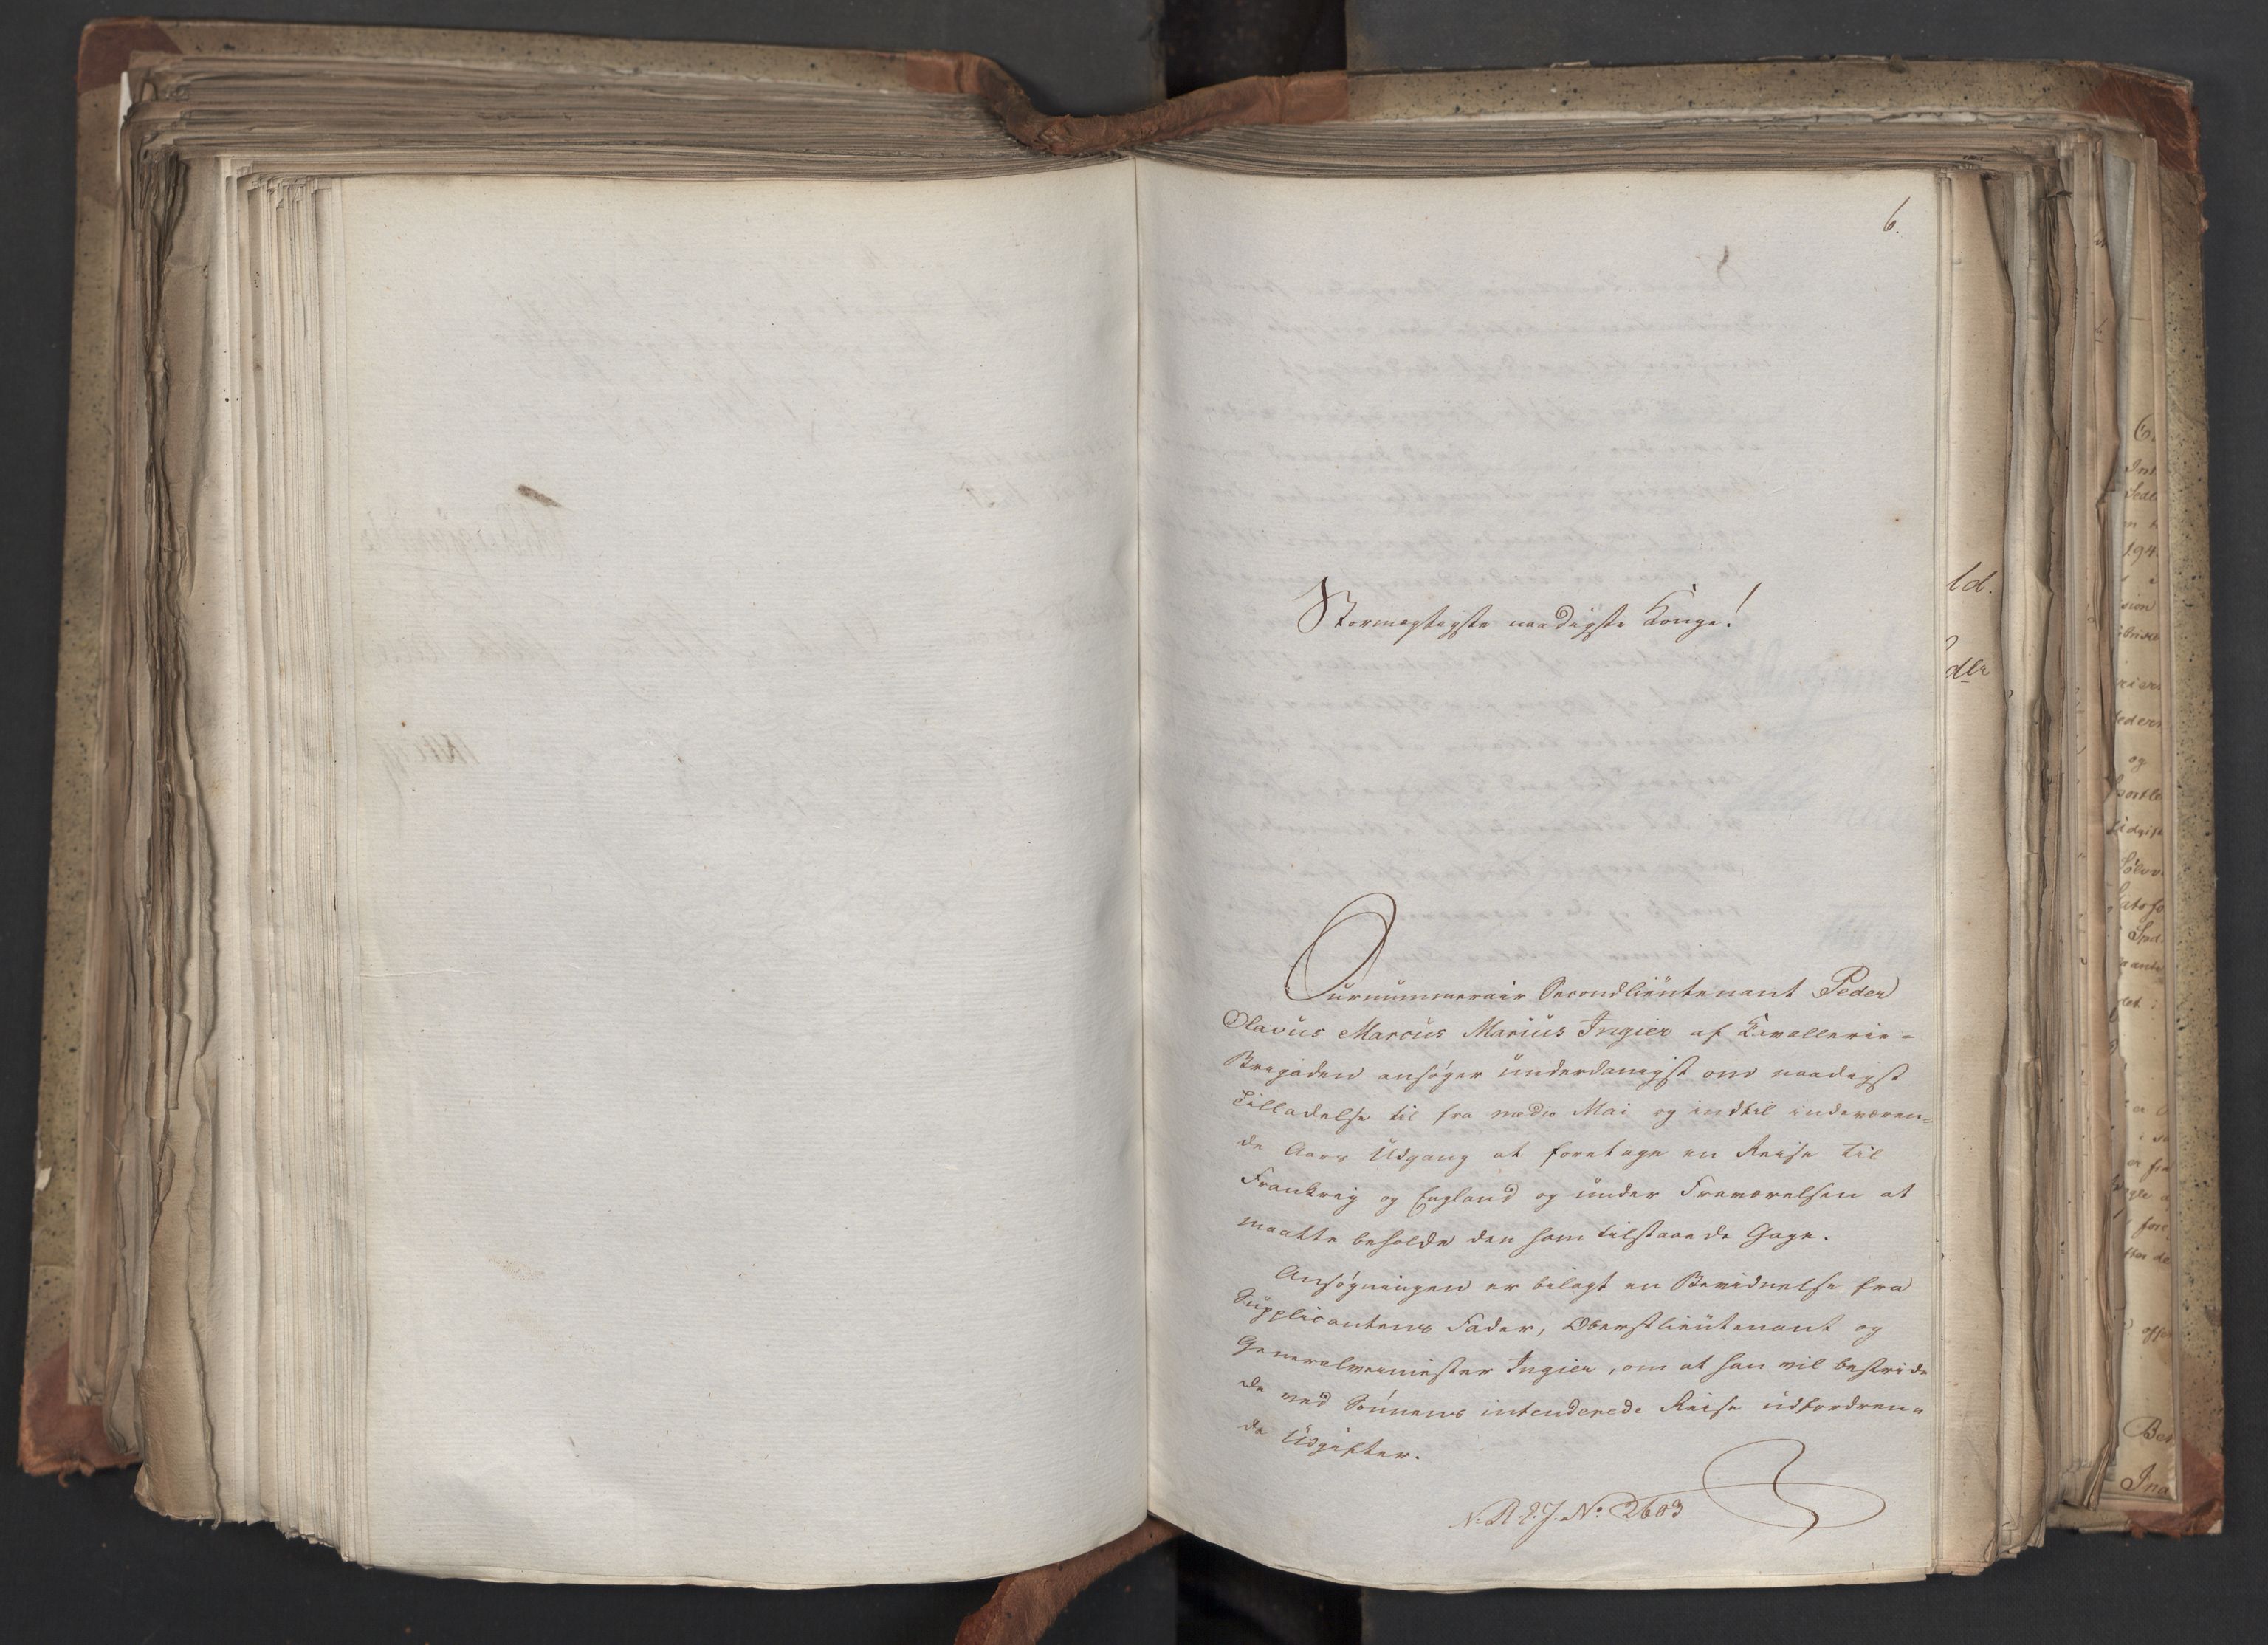 6.
Stormægtigste naadigste Konge!
Ournummerair Secondlieutenant Peder
Olavus Marcus Marius Ingier af Kavallerie-
Brigaden ansøger underdanigst om naadigst
Tilladelse til fra medio Mai og indtil indeværen-
de Aars Udgang at foretage en Reise til
Frankrig og England og under Fraværelsen at
maatte beholde den ham tilstaaede Gage.
Ansøgningen er bilagt en Bevidnelse fra
Supplicantens Fader, Oberstlieutenant og
Generalveimester Ingier, om at han vil bestride
de ved Sønnens intenderede Reise udfordren-
de Udgifter.
N. R. J. No 2603
ld.
der
Int
194
sion
og
Sølvv
for
Bes
Ina